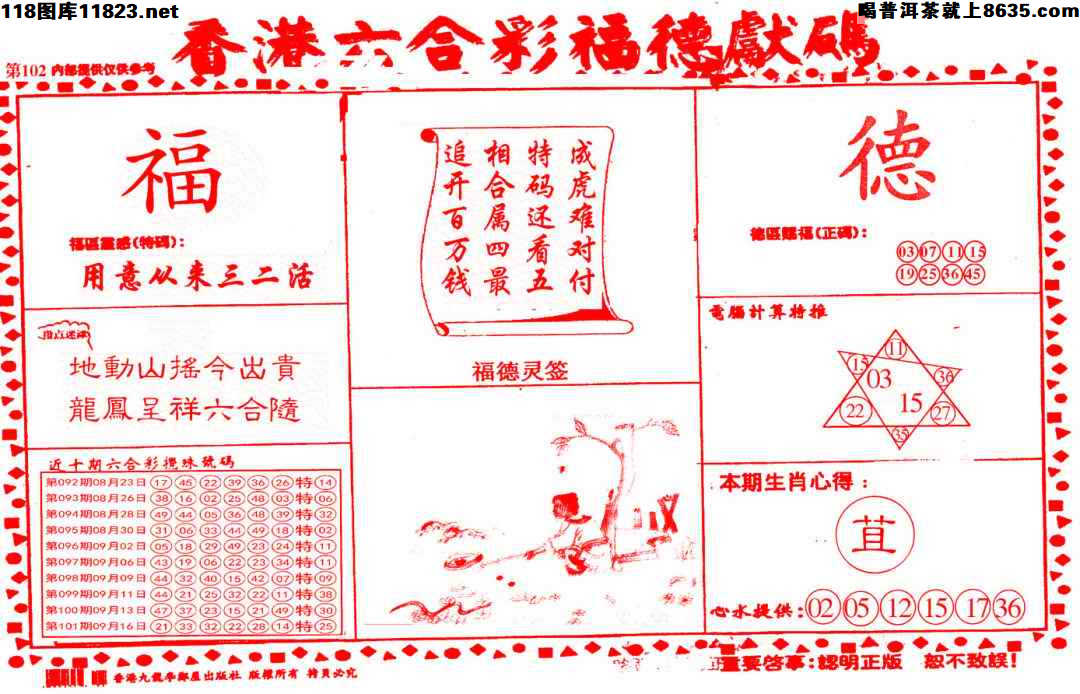 118图库11823.net
喝普洱茶就上8635.com
香港六合彩福德獻碼
第102 内部提供仅供参考
福
福區靈感(特碼):
用意从来三二活
地動山搖今出貴
龍鳳呈祥六合隨
近十期六合彩攪珠號碼
第092期08月23日 17 45 22 39 36 26 特 14
第093期08月26日 38 16 02 25 48 03 特 06
第094期08月28日 49 44 05 36 48 39 特 32
第095期08月30日 31 06 33 44 49 18 特 02
第096期09月02日 05 18 29 49 23 24 特 11
第097期09月06日 43 19 06 22 23 34 特 11
第098期09月09日 44 32 40 15 42 07 特 09
第099期09月11日 44 21 25 32 22 11 特 38
第100期09月13日 47 37 23 15 21 49 特 30
第101期09月16日 21 33 32 22 28 14 特 25
成虎难对付
特码还看五
相合属四最
追开百万钱
福德灵签
德
德區賜福(正碼):
03 07 11 15
19 25 36 45
電腦計算特推
11
15 03 36
22 15 27
35
本期生肖心得:
苴
心水提供: 02 05 12 15 17 36
香港九龍李鄭屋出版社 版權所有 拷貝必究
重要啓事:認明正版 恕不致誤!